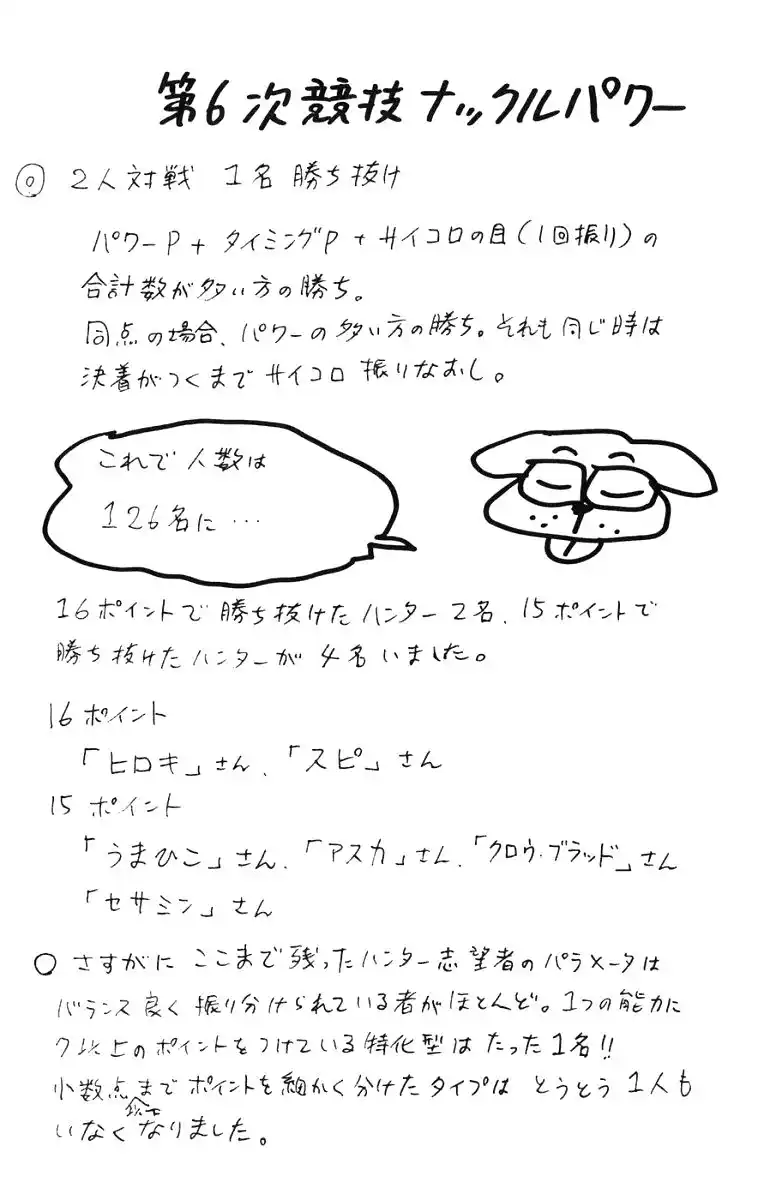 第6次競技ナックルパワー
◎ 2人対戦 1名勝ち抜け
パワーP+タイミングP+サイコロの目(1回振り)の
合計数が多い方の勝ち。
同点の場合、パワーの多い方の勝ち。それも同じ時は
決着がつくまでサイコロ振りなおし。
これで人数は
126名に…
16ポイントで勝ち抜けたハンター2名、15ポイントで
勝ち抜けたハンターが4名いました。
16ポイント
「ヒロキ」さん、「スピ」さん
15ポイント
「うまひこ」さん、「アスカ」さん、「クロウ・ブラッド」さん
「セサミン」さん
○ さすがにここまで残ったハンター志望者のパラメータは
バランス良く振り分けられている者がほとんど。1つの能力に
7以上のポイントをつけている特化型はたった1名!!
小数点までポイントを細かく分けたタイプはとうとう1人も
いなくなりました。